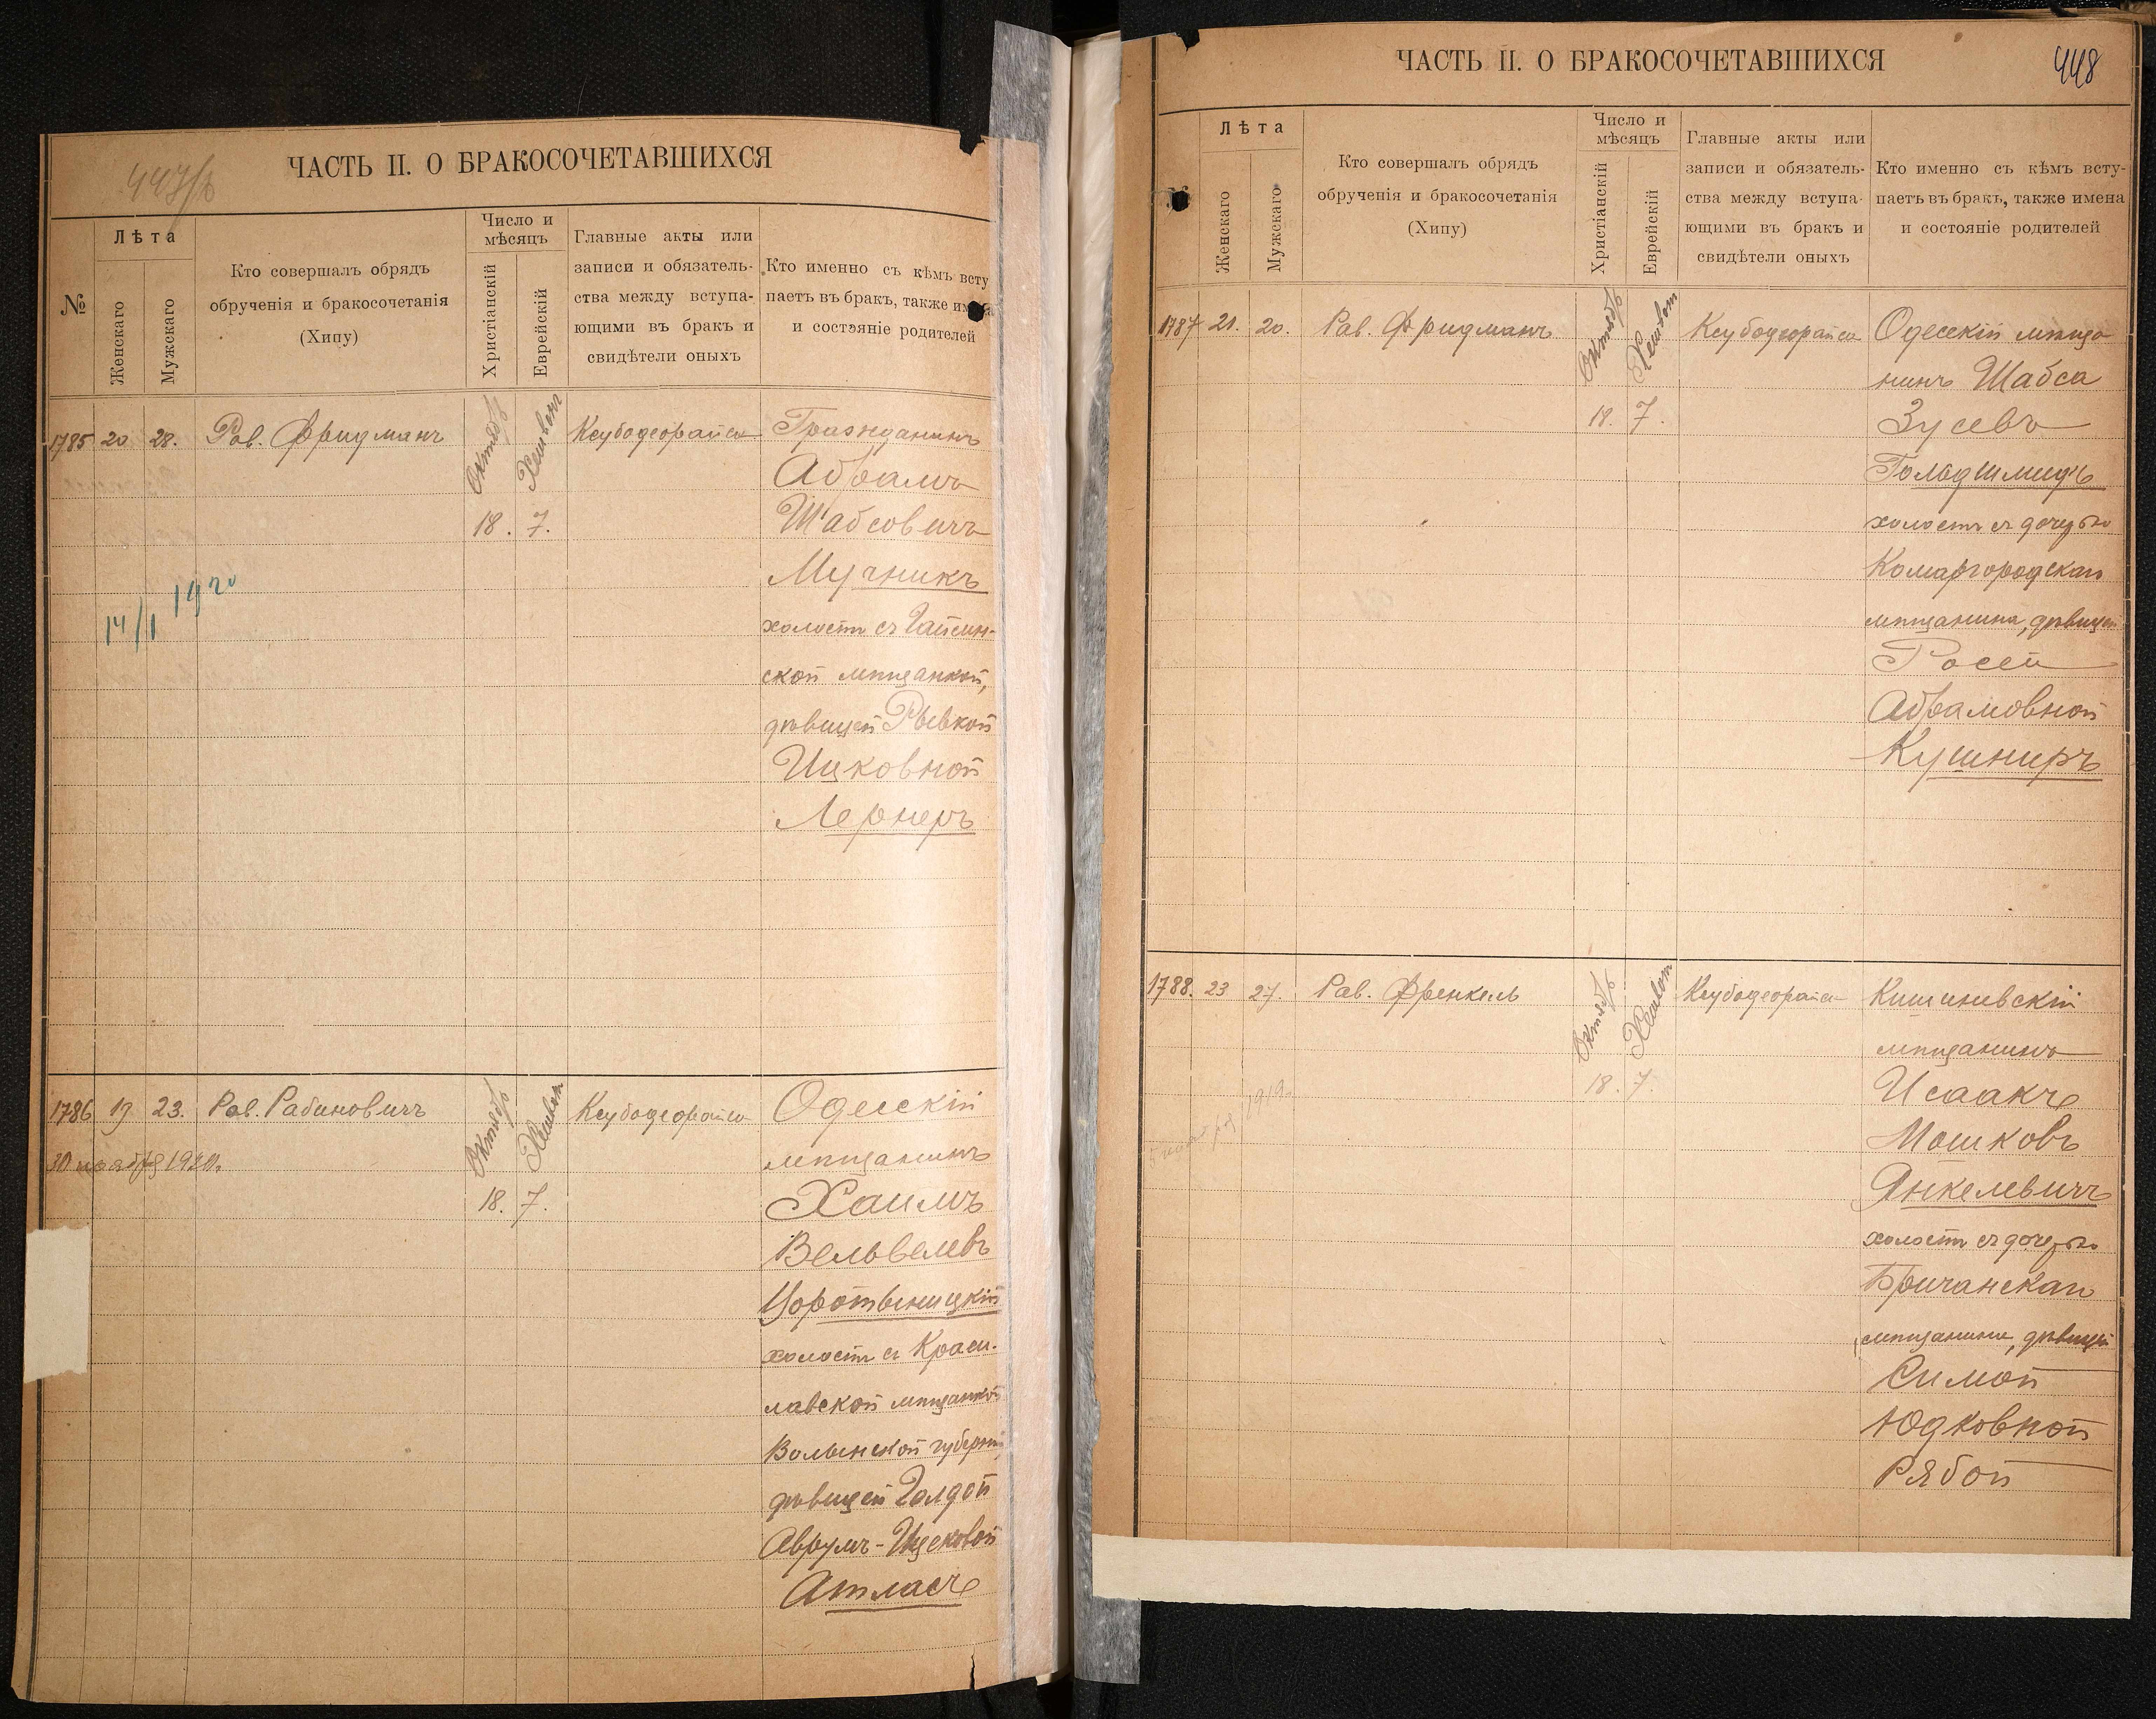 447/ъ
ЧАСТЬ II. О БРАКОСОЧЕТАВШИХСЯ
№
Лѣта
Женскаго
Мужскаго
Кто совершалъ обрядъ
обрученія и бракосочетанія
(Хипу)
Число и
мѣсяцъ
Христіанскій
Еврейскій
Главные акты или
записи и обязатель-
ства между вступа-
ющими въ бракъ и
свидѣтели оныхъ
Кто именно съ кѣмъ всту
паетъ въ бракъ, также имена
и состояніе родителей
1785 20 28. Рав. Фридманъ Октябрь Хешвон Ксубодеорайса Гражданинъ
Абрамъ
18. 7. Шабсовичъ
Мучникъ
14/I 1920
холостъ съ Гайсин-
ской мѣщанкой,
дѣвицей Рывкой
Ицковной
Лернеръ
1786 19 23. Рав. Рабиновичъ Октябрь Хешвон Ксубодеорайса Одесскій
30 ноября 1920. мѣщанинъ
18. 7. Хаимъ
Вельвелевъ
холостъ съ Краси-
лавской мѣщанкой
Волынской губерніи,
дѣвицей Голдой
Аврумъ-Ицековой
Атласъ
448
ЧАСТЬ II. О БРАКОСОЧЕТАВШИХСЯ
Лѣта
Женскаго
Мужскаго
Кто совершалъ обрядъ
обрученія и бракосочетанія
(Хипу)
Число и
мѣсяцъ
Христіанскій
Еврейскій
Главные акты или
записи и обязатель-
ства между вступа-
ющими въ бракъ и
свидѣтели оныхъ
Кто именно съ кѣмъ всту-
паетъ въ бракъ, также имена
и состояніе родителей
1787 21. 20. Рав. Фридманъ Октябрь Хешвон Ксубодеорайса Одесскій мѣща
нинъ Шабса
18. 7. Зусевъ
Гольдшмидъ
холостъ съ дочерью
Комаргородскаго
мѣщанина, дѣвицей
Росей
Абрамовной
Кушниръ
1788. 23 27. Рав. Френкель Октябрь Хешвон Ксубодеорайса Кишиневскій
мѣщанинъ
18. 7. Исаакъ
5 ноября 1919. Мошковъ
Янкелевичъ
холостъ съ дочерью
Бричанскаго
мѣщанина, дѣвицей
Симой
Юдковной
Рябой